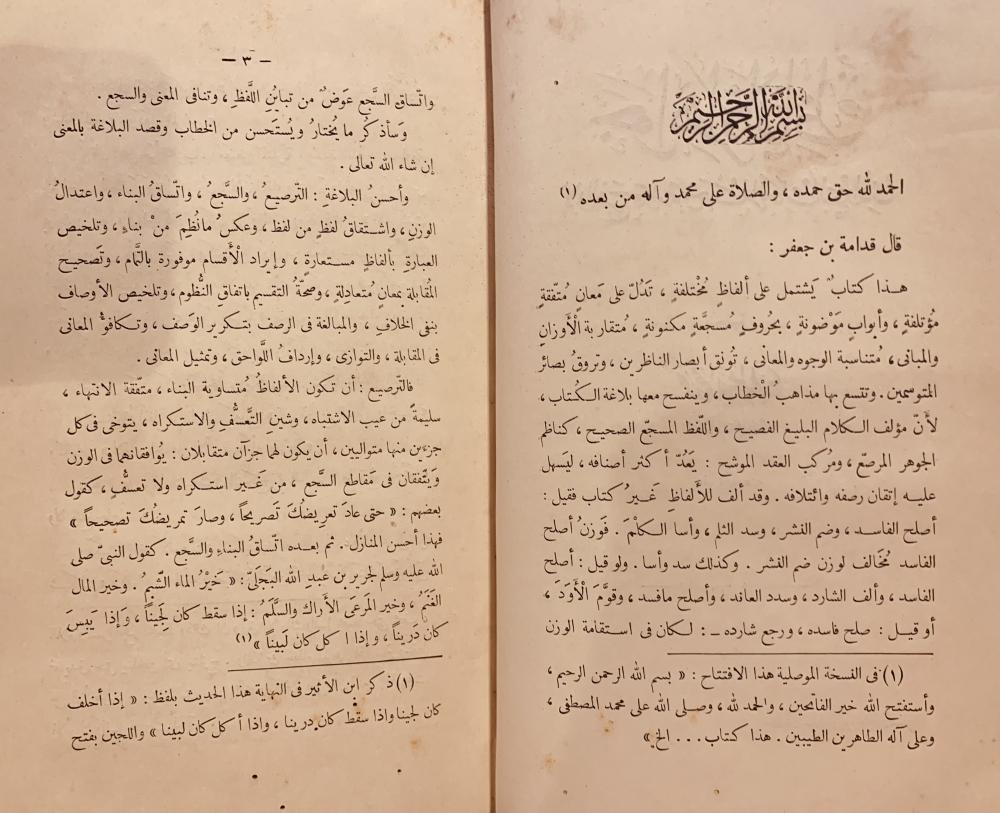 بسم الله الرحمن الرحيم
الحمد لله حق حمده ، والصلاة على محمد وآله من بعده (١)
قال قدامة بن جعفر :
هـذا كتابٌ يَشتمل على ألفاظٍ مُخْتلفةٍ ، تَدُلّ على مَعانٍ مُتّفقةٍ
مُؤتلفةٍ ، وأبوابٍ مَوْضونةٍ ، بحُروفٍ مُسجعَّةٍ مكنونةٍ ، مُتقاربة الْأوزان
والمبانى ، مُتناسبة الوجوه والمعانى ، تُونق أبصار الناظرين ، وتروقُ بصائر
المتوسمين . وتتسع بها مذاهبُ الْخطاب ، وينفسح معها بلاغة الـكُتاب ،
لأنّ مؤلف الـكلام البليغ الفصيح ، واللّفظ المسجّع الصحيح ، كناظم
الجوهر المرصّع ، ومُركب العقد الموشح : يَعُدّ أكثر أصنافه ، ليَسهل
عليـه إتقان رصفه وائتلافه . وقد ألف للألفاظ غَيرُ كتاب فقيل :
أصلح الفاسـد ، وضم النشر ، وسد الثلم ، وأسا الـكَلْمَ . فَوَزنُ أصلح
الفاسد مُخالف لوزن ضم النشر . وكذلك سد وأسا . ولو قيل : أصلح
الفاسد ، وألف الشارد ، وسدد العاند ، وأصلح مافسد ، وقوَّمَ الْأوَدَ ،
أو قيـل : صلح فاسده ، ورجع شارده ــ : لـكان فى اسـتقامة الوزن
(١) فى النسخة الموصلية هذا الافتتاح : « بسم الله الرحمن الرحيم ،
وأستفتح الله خير الفاتحين ، والحمد لله ، وصـلى الله على محمد المصطفى ،
وعلى آله الطاهرين الطيبين . هذا كتاب . . . الخ »
— ٣ —
واتّساق السَّجع عَوَضٌ من تبايُنِ اللَّفظِ ، وتنافى المعنى والسجع .
وَسأذكرُ ما يُختارُ ويُستَحسن من الخطاب وقصد البلاغة بالمعنى
إن شاء الله تعالى .
وأحسنُ البلاغةِ : التّرصيعُ ، والسَّجعُ ، واتّساقُ البناء ، واعتدالُ
الوزنِ ، واشـتقاقُ لفظٍ من لفظ ، وعكسُ مانُظِمَ منْ بناءٍ ، وتلخيص
العبارةِ بألفاظٍ مسـتعارةٍ ، وإيراد الْأقسام موفورة بالتَّمام ، وتَصحيح
المُقابلة بمعانٍ مُتعادلةٍ ، وصحّةُ التقسيم باتفاق النُّظوم ، وتلخيص الأوصاف
بنفى الخلاف ، والمبالغة فى الرصف بتـكرير الوَصف ، وتـكافؤُ المعانى
فى المقابلة ، والتوازى ، وإردافُ اللَّواحق ، وتمثيل المعانى .
فالتّرصيع : أن تكون الألفاظُ مُتساوية البناء ، متّفقة الانتهاء ،
سليمةً من عيب الاشتباه ، وشين التَّعسُّف والاستكراه ، يتوخى فى كل
جزءين منها متواليين ، أن يكون لهما جزآن متقابلان : يُوافقانهما فى الوزن
ويَتّفقان فى مَقاطع السَّجع ، من غَـير اسـتكراه ولا تعسفُّ ، كقول
بعضهم : « حتى عادَ تعريضُكَ تَصريحاً ، وصارَ تمريضُكَ تصحيحاً »
فهذا أحسن المنازل . ثم بعـده اتّساقُ البناء والسَّجع . كقول النبىّ صلى
الله عليه وسلم لجريرِ بن عبدِ الله البَجَلىِّ : « خَيْرُ الماء الشَّبِمُ . وخير المال
الغَنَمُ ، وخير المَرعَى الأراك والسَّلَمُ : إذا سقط كان لَجيناً ، وَإذا يَبِسَ
كان دَريناً ، وإذا ا كل كان لَبيناً » (١)
(١) ذكر ابن الأثير فى النهاية هذا الحديث بلفظ : « إذا أخلف
كان لجينا وإذا سقط كان درينا ، وإذا أكل كان لبينا » واللجين بفتح